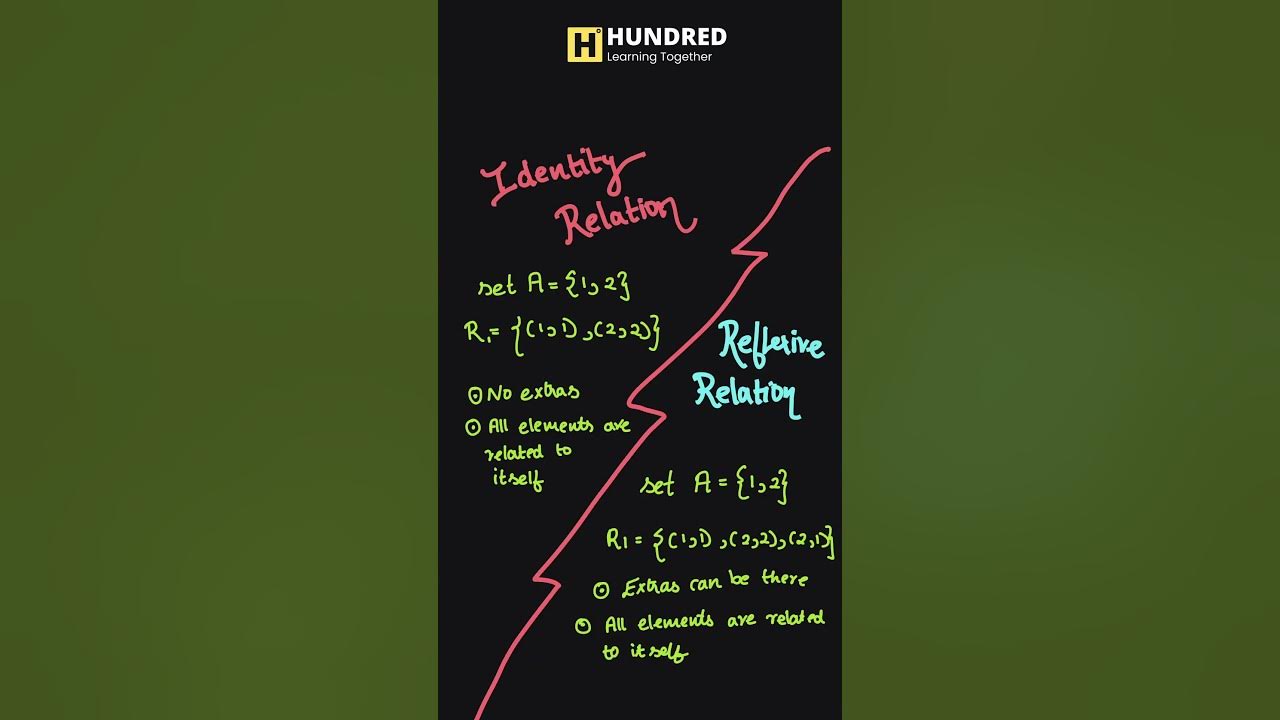 H
HUNDRED
Learning Together
Identity
Relation
set A = {1, 2}
R₁ = {(1,1), (2,2)}
⊙ No extras
⊙ All elements are
related to
itself
Reflexive
Relation
set A = {1,2}
R1 = {(1,1), (2,2), (2,1)}
⊙ Extras can be there
⊙ All elements are related
to itself